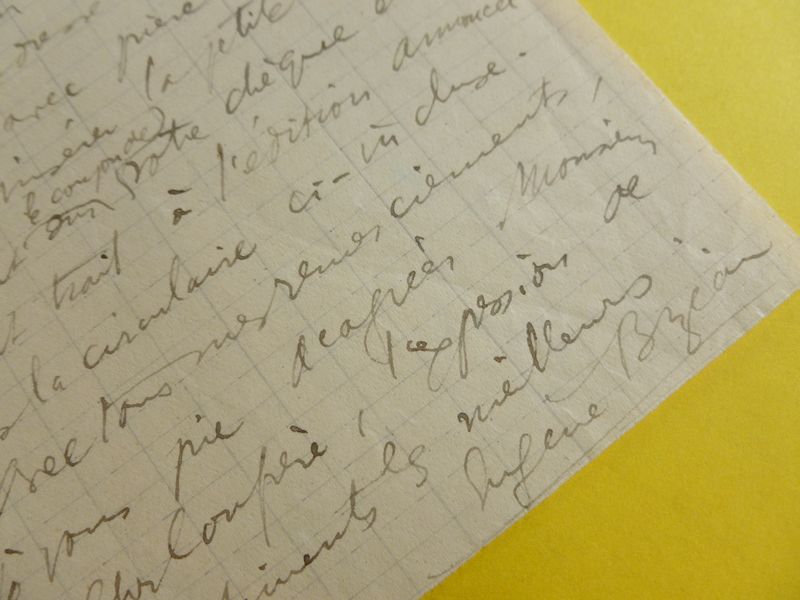 avec prière
insérer la petite
le coupon de
sur votre chèque
trait à l'édition annoncée
la circulaire ci-incluse.
avec tous mes remerciements,
je vous prie d'agréer Monsieur
cher Confrère, l'expression de
mes meilleurs
Eugène Bizeau